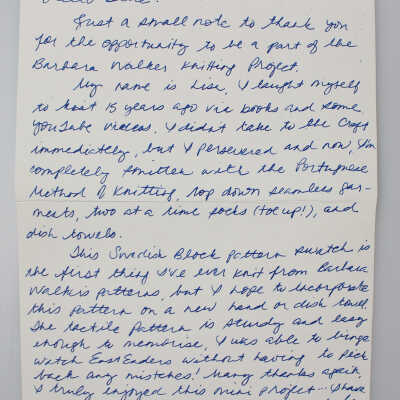 Just a small note to thank you
for the opportunity to be a part of the
Barbara Walker Knitting Project.
My name is Lisa. I taught myself
to knit 15 years ago via books and some
YouTube videos. I didn't take to the craft
immediately, but I persevered and now, I'm
completely smitten with the Portuguese
Method of Knitting, top down seamless gar-
ments, two at a time socks (toe up!), and
dish towels.
This Swedish Block pattern swatch is
the first thing I've ever knit from Barbara
Walker's patterns, but I hope to incorporate
this pattern on a new hand or dish towel.
The tactile pattern is sturdy and easy
enough to memorise. I was able to binge
watch EastEnders without having to peck
back any mistakes! Many thanks again.
I truly enjoyed this mini project --